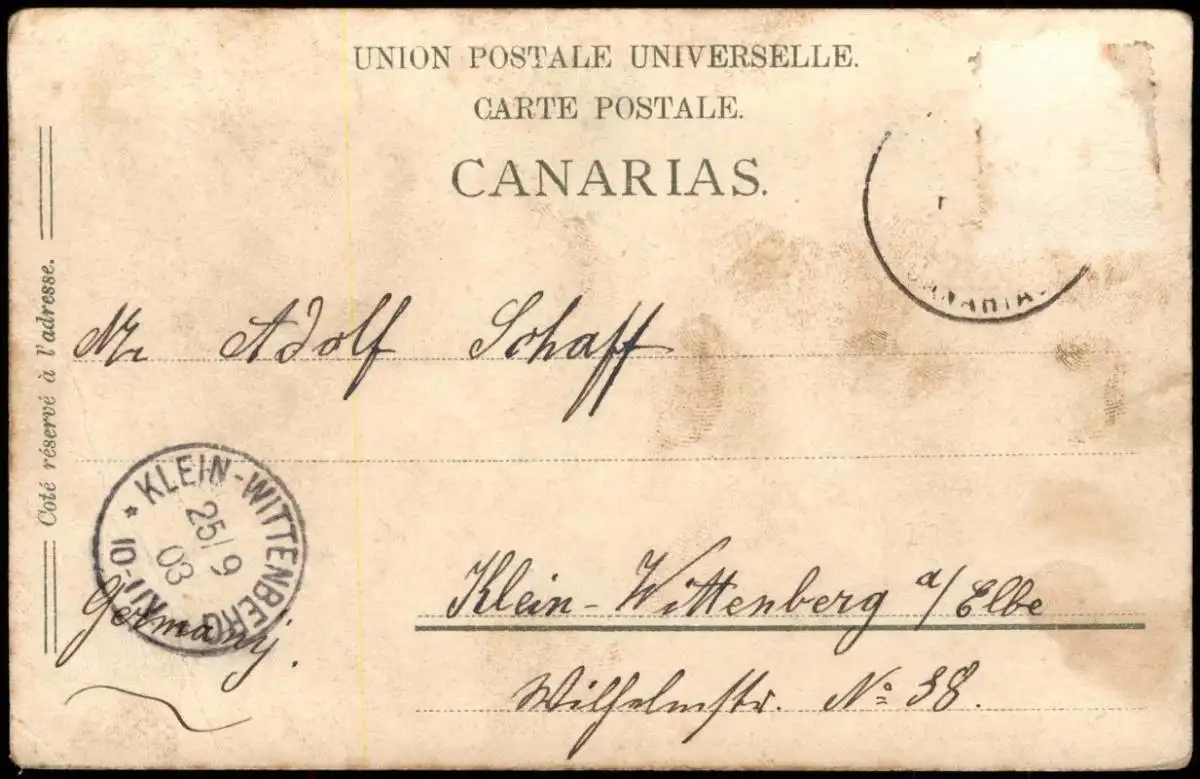 UNION POSTALE UNIVERSELLE.
CARTE POSTALE.
CANARIAS.
CANARIA
Coté réservé à l'adresse.
Mr Adolf Schaff
* KLEIN-WITTENBERG
25/9
03
10-11V
Klein-Wittenberg a/Elbe
Germany.
Wilhelmstr. No 38.